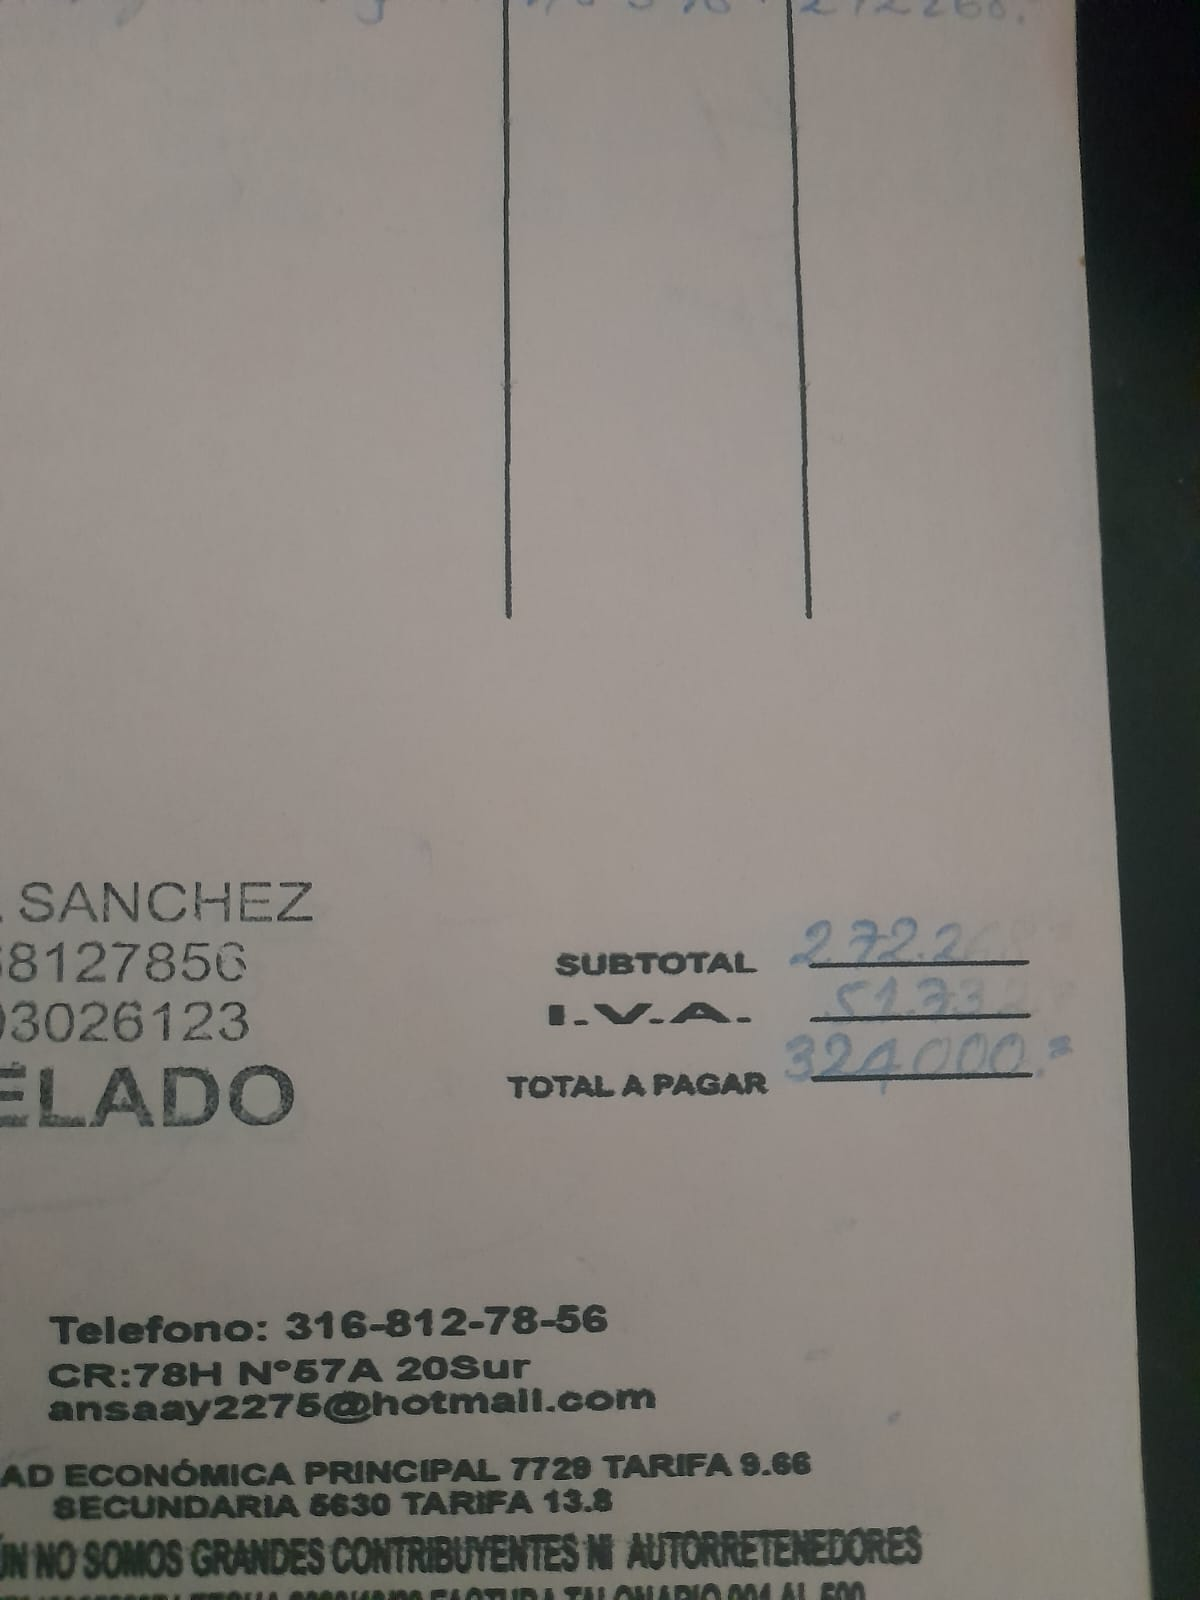 272268.
. SANCHEZ
68127856
03026123
ELADO
SUBTOTAL 272.268
I.V.A. 51.732
TOTAL A PAGAR 324000.=
Telefono: 316-812-78-56
CR:78H Nº57A 20Sur
ansaay2275@hotmail.com
AD ECONÓMICA PRINCIPAL 7729 TARIFA 9.66
SECUNDARIA 5630 TARIFA 13.8
ÚN NO SOMOS GRANDES CONTRIBUYENTES NI AUTORRETENEDORES
FACTURA TALONARIO 001 AL 500